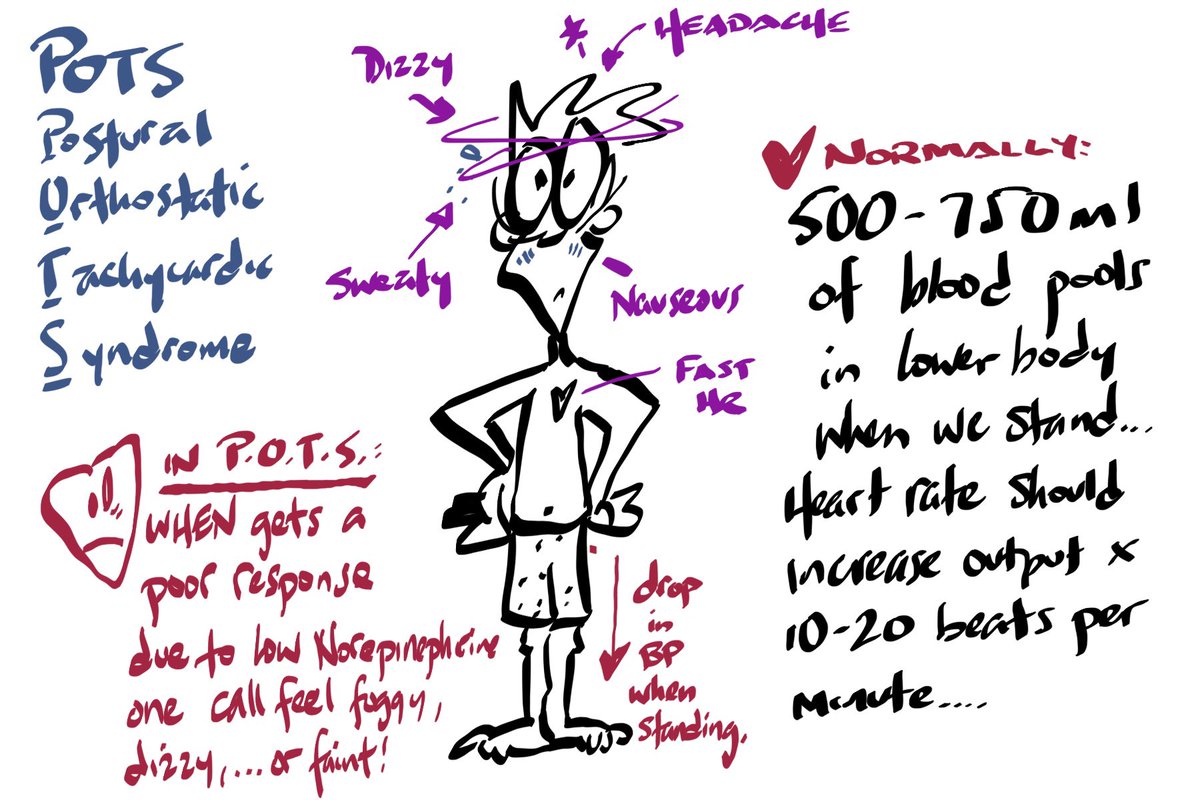 POTS
Postural
Orthostatic
Tachycardic
Syndrome
Dizzy
HEADACHE
Sweaty
Nauseous
FAST
HR
NORMALLY:
500-750ml
of blood pools
in lower body
when we stand...
Heart rate should
increase output x
10-20 beats per
minute....
IN P.O.T.S.:
WHEN gets a
poor response
due to low Norepinephrine
one call feel foggy,
dizzy,...or faint!
drop
in
BP
when
standing.